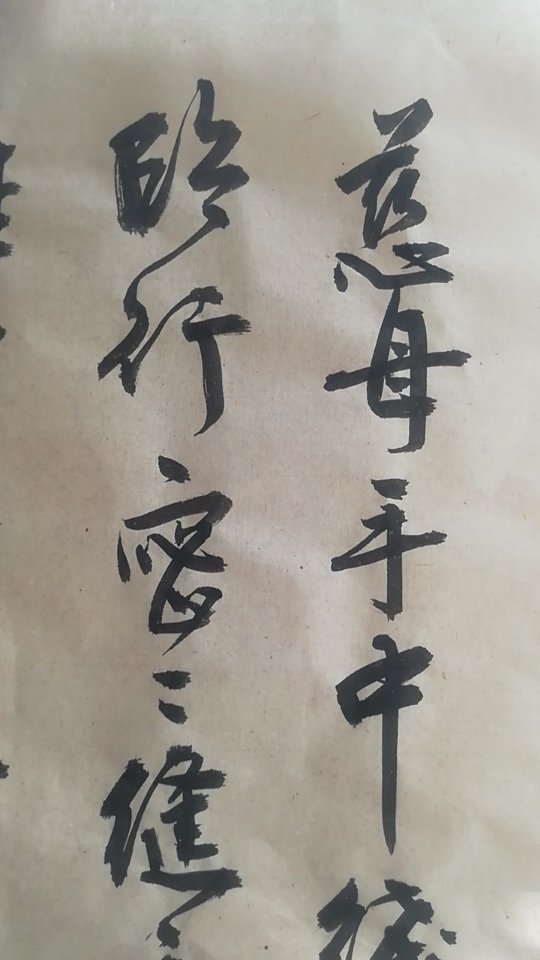 慈母手中线
臨行密〻缝